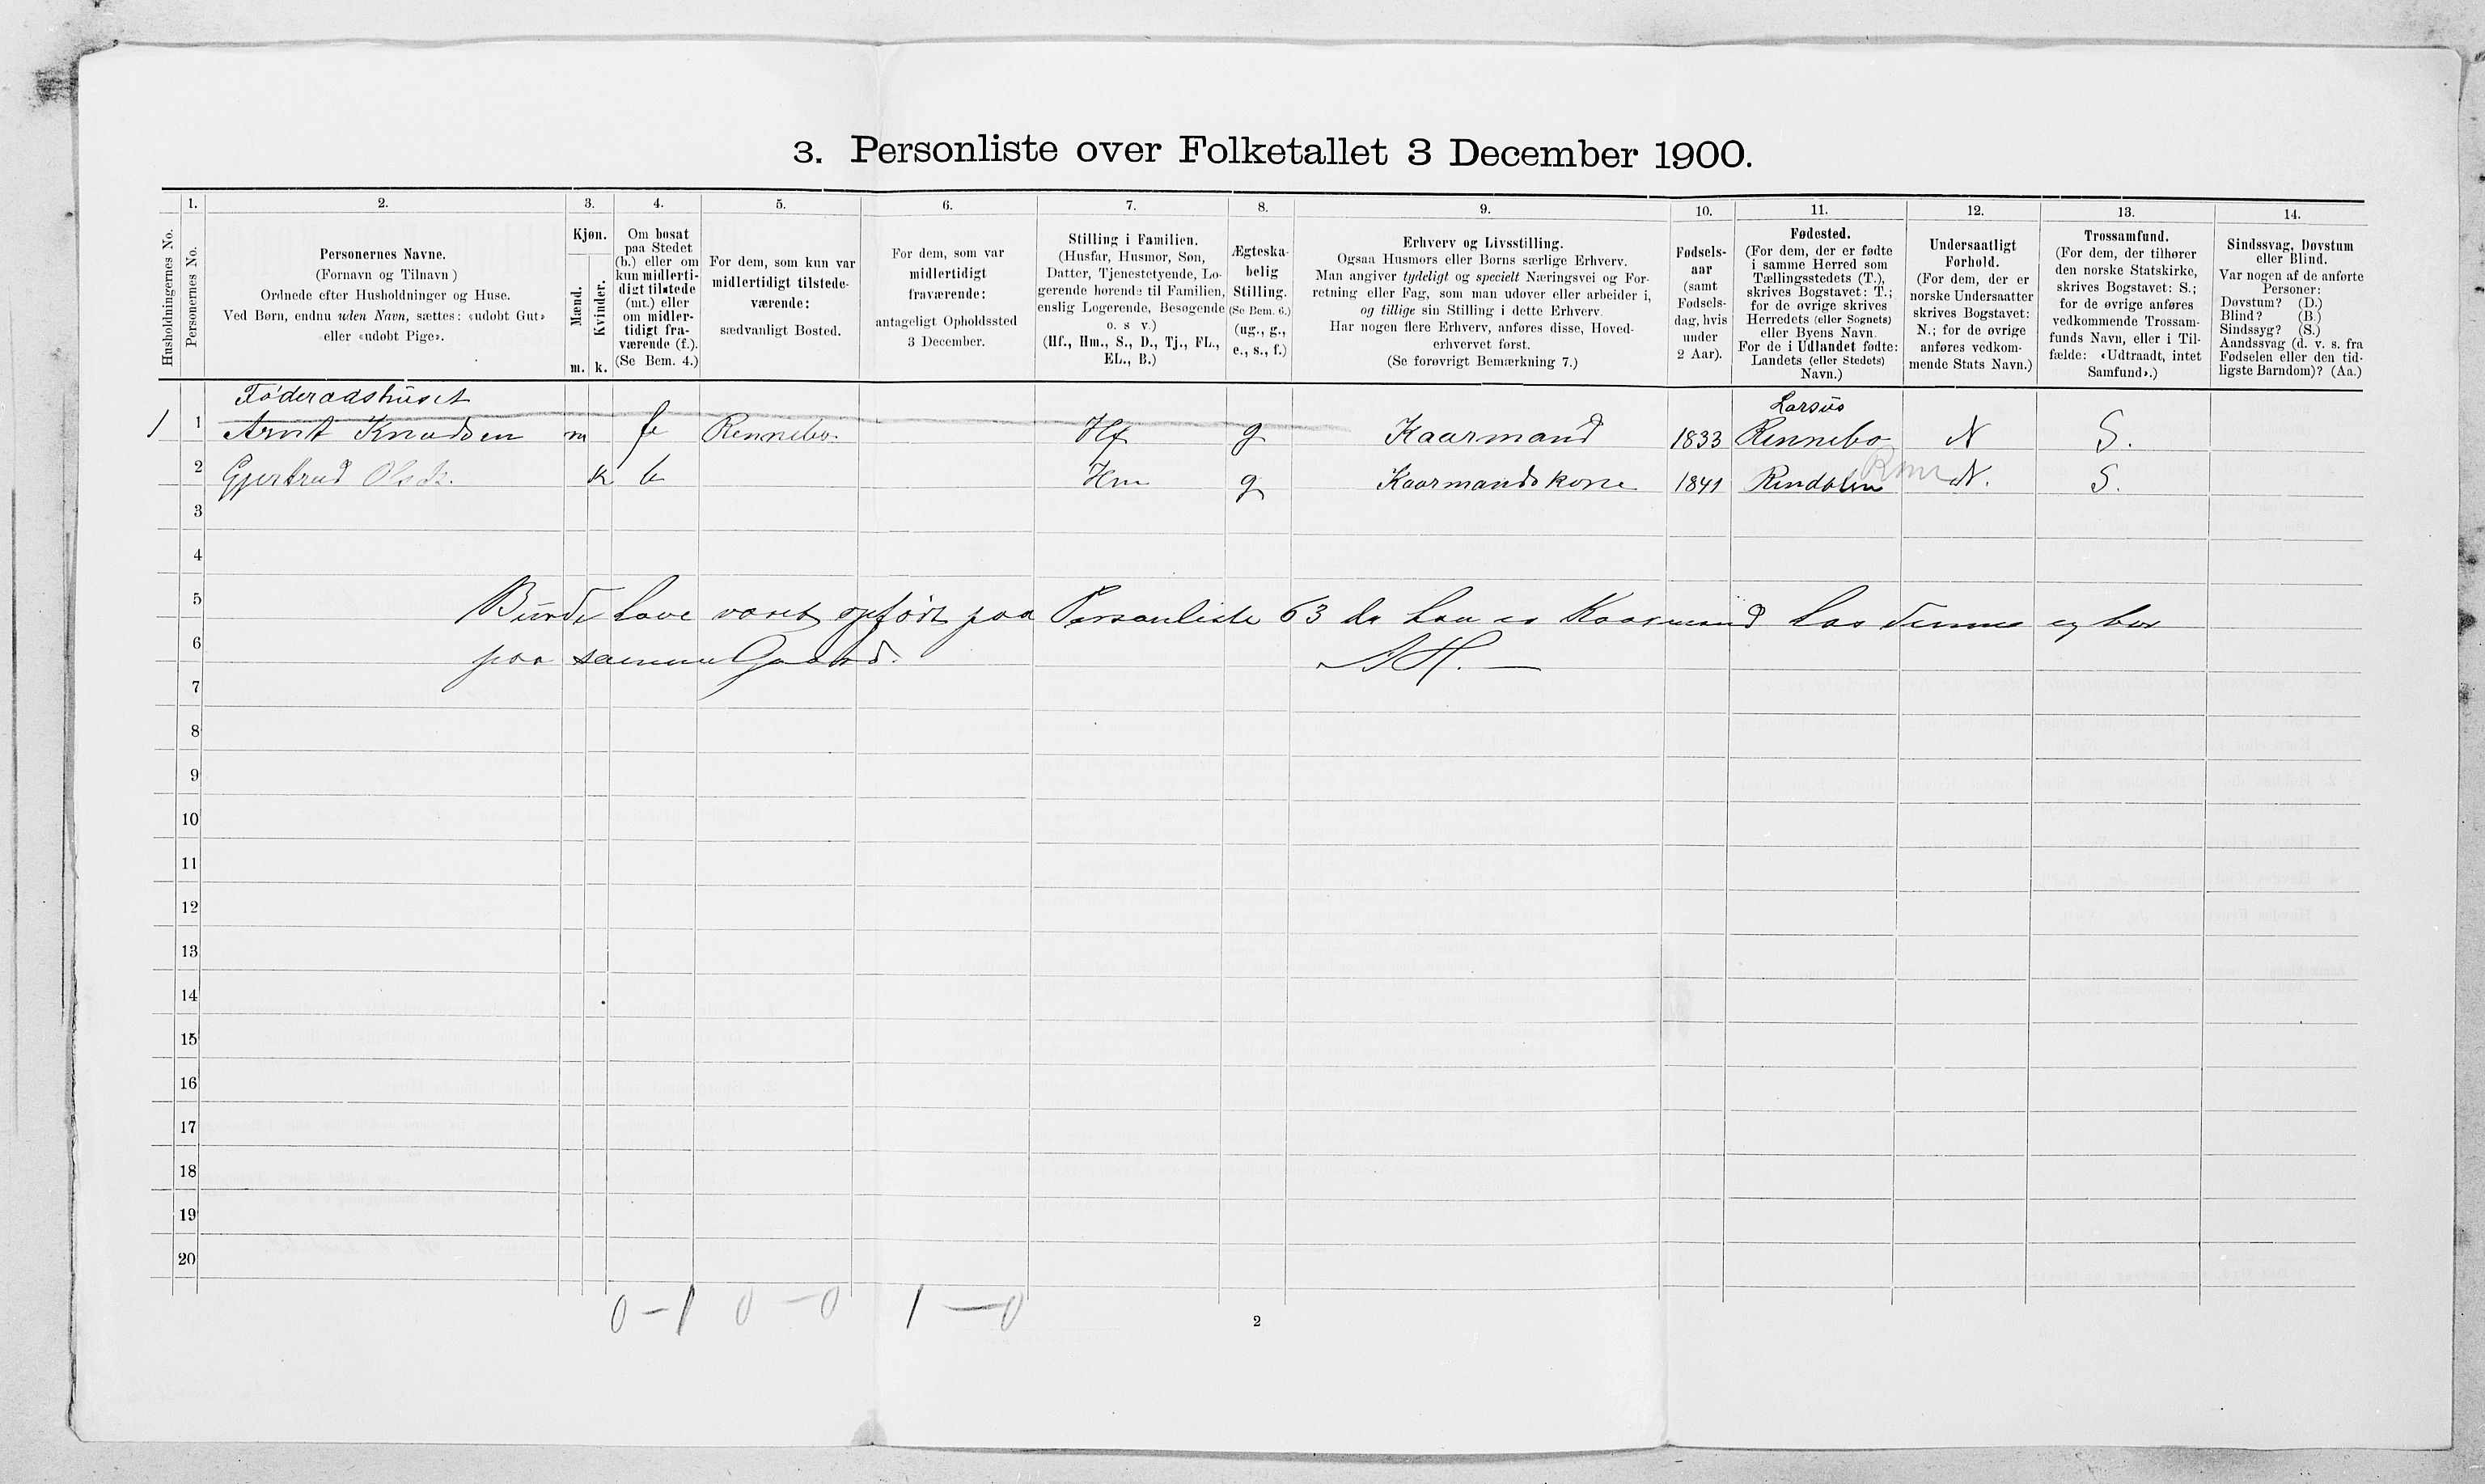 3. Personliste over Folketallet 3 December 1900.
Husholdningernes No.
1.
Personernes No.
2.
Personernes Navne.
(Fornavn og Tilnavn)
Ordnede efter Husholdninger og Huse.
Ved Børn, endnu uden Navn, sættes: «udøbt Gut»
eller «udøbt Pige».
3.
Kjøn.
Mænd.
Kvinder.
m. k.
4.
Om bosat
paa Stedet
(b.) eller om
kun midlerti-
digt tilstede
(mt.) eller
om midler-
tidigt fra-
værende (f.).
(Se Bem. 4.)
5.
For dem, som kun var
midlertidigt tilstede-
værende:
sædvanligt Bosted.
6.
For dem, som var
midlertidigt
fraværende:
antageligt Opholdssted
3 December.
7.
Stilling i Familien.
(Husfar, Husmor, Søn,
Datter, Tjenestetyende, Lo-
gerende hørende til Familien,
enslig Logerende, Besøgende
o. s v.)
(Hf., Hm., S., D., Tj., FL.,
EL., B.)
8.
Ægteska-
belig
Stilling.
(Se Bem. 6.)
(ug., g.,
e., s., f.)
9.
Erhverv og Livsstilling.
Ogsaa Husmors eller Børns særlige Erhverv.
Man angiver tydeligt og specielt Næringsvei og For-
retning eller Fag, som man udøver eller arbeider i,
og tillige sin Stilling i dette Erhverv.
Har nogen flere Erhverv, anføres disse, Hoved-
erhvervet først.
(Se forøvrigt Bemærkning 7.)
10.
Fødsels-
aar
(samt
Fødsels-
dag, hvis
under
2 Aar).
11.
Fødested.
(For dem, der er fødte
i samme Herred som
Tællingsstedets (T.),
skrives Bogstavet: T.;
for de øvrige skrives
Herredets (eller Sognets)
eller Byens Navn
For de i Udlandet fødte:
Landets (eller Stedets)
Navn.)
12.
Undersaatligt
Forhold.
(For dem, der er
norske Undersaatter
skrives Bogstavet:
N.; for de øvrige
anføres vedkom-
mende Stats Navn.)
13.
Trossamfund.
(For dem, der tilhører
den norske Statskirke,
skrives Bogstavet: S.;
for de øvrige anføres
vedkommende Trossam-
funds Navn, eller i Til-
fælde: «Udtraadt, intet
Samfund».)
14.
Sindssvag, Døvstum
eller Blind.
Var nogen af de anførte
Personer:
Døvstum? (D.)
Blind? (B.)
Sindssyg? (S.)
Aandssvag (d. v. s. fra
Fødselen eller den tid-
ligste Barndom)? (Aa.)
Føderaadshuset
1 1 Arnt Knudsen m Rennebo. Hf g Kaarmand 1833 Rennebo N S.
2 Gjertrud Olsdt. k b Hm g Kaarmandskone 1841 Rindalen N. S.
3
4
5 Burde have været opført paa Personliste 63 da han er Kaarmand hos denne og bor
6 paa samme Gaard. AH.
7
8
9
10
11
12
13
14
15
16
17
18
19
20
0-1 0-0 1-0
2